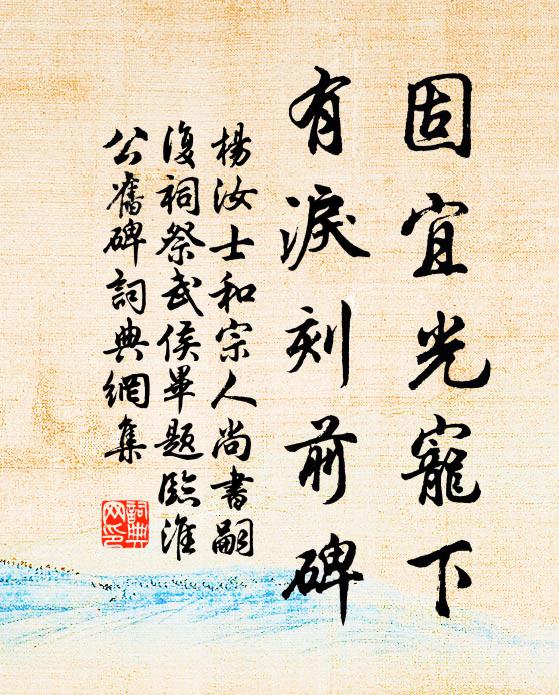 固宜光寵下
有淚刻前碑
楊汝士和宗人尚書嗣
復祠祭武侯畢題臨淮
公舊碑詞典網集
詞典网印